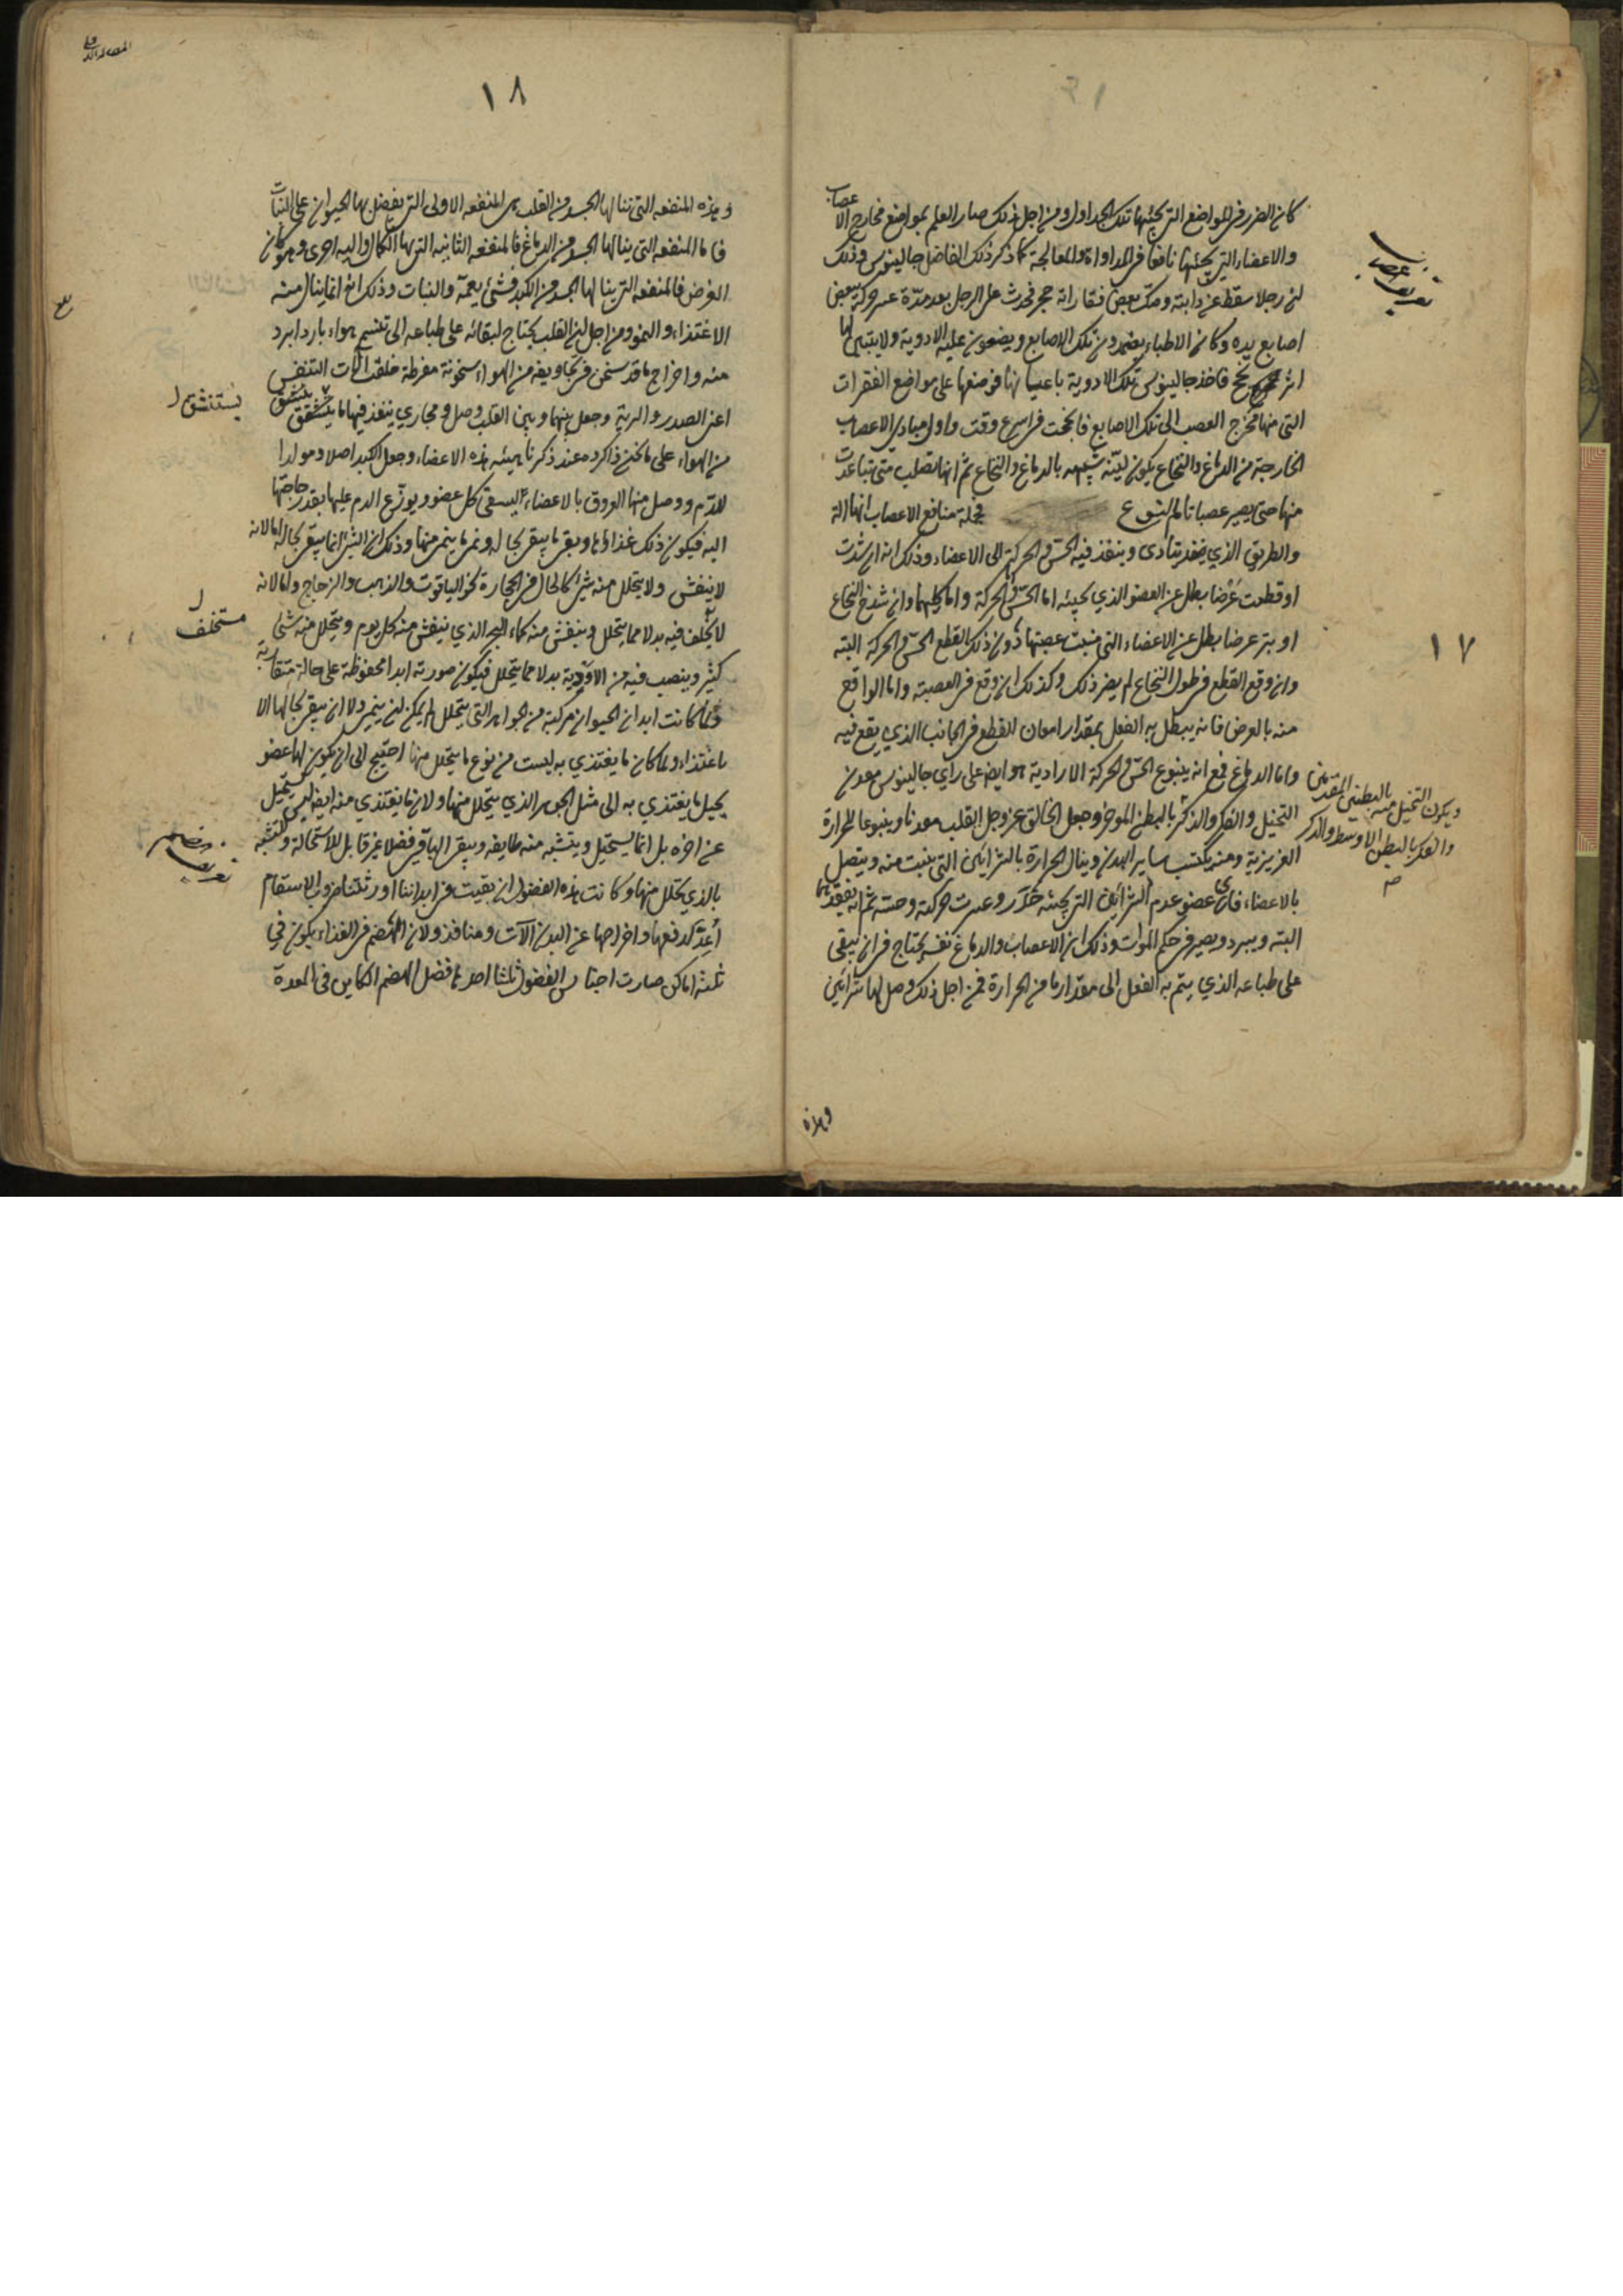 كان الضرر في المواضع التي تجيئها تلك الجداول ومن اجل ذلك صار العلم بمواضع مخارج الاعصاب
والاعضاء التي تجيئها نافعا في المداواة والمعالجة كما ذكر ذلك الفاضل جالينوس وذلك
ان رجلا سقط عن دابته وصك بعض فقاراته حجر فحدث على الرجل بعد مدة عسر حركة بعض
اصابع يده وكان الاطباء يضمدون تلك الاصابع ويضعون عليه الادوية ولا يتبين لها
اثر نجح فاخذ جالينوس تلك الادوية باعيانها فوضعها على مواضع الفقرات
التي منها مخرج العصب الى تلك الاصابع فانجحت في اسرع وقت واول مبادي الاعصاب
الخارجة من الدماغ والنخاع يكون لينة شبيهه بالدماغ والنخاع ثم انها تصلب متى تباعدت
منها حتى يصير عصبا تام النوع فجملة منافع الاعصاب انها الة
والطريق الذي يتأدى وينفذ فيه الحس والحركة الى الاعضاء وذلك انه ان شدت
او قطعت عرضا بطل عن العضو الذي تجيئه اما الحس والحركة واما كليهما وان شدخ النخاع
او بتر عرضا بطل عن الاعضاء التي منبت عصبتها دون ذلك القطع الحس والحركة البته
وان وقع القطع في طول النخاع لم يضر ذلك وكذلك ان وقع في العصبة واما الواقع
منه بالعرض فانه يبطل به الفعل بمقدار امعان القطع في الجانب الذي يقع فيه
واما الدماغ فمع انه ينبوع الحس والحركة الارادية هو ايضا على راي جالينوس معدن
التخيل والفكر والذكر بالبطن الموخر وجعل الخالق عز وجل القلب معدنا وينبوعا للحرارة
الغريزية ومنه يكتسب ساير البدن وينال الحرارة بالشرائين التي ينبت منه ويتصل
بالاعضاء فاي عضو عدم الشرائين التي تجيئه خدر وعسرت حركته وحسه ثم انه يفقدهما
البته ويبرد ويصير في حكم الموات وذلك ان الاعصاب والدماغ نفسه يحتاج في ان يبقى
على طباعه الذي يتم به الفعل الى مقدار ما من الحرارة فمن اجل ذلك وصل لها شرائين
ويكون التخيل منه بالبطنين المقدمين
والفكر بالبطن الاوسط والذكر
١٧
وهذه
١٨
وهذه المنفعه التي ينالها الجسد من القلب هي المنفعه الاولى التي يفضل بها الحيوان على النبات
فاما المنفعه التي ينالها الجسد من الدماغ فالمنفعه الثانيه التي بها الكمال واليه اجرى وهو كان
الغرض فالمنفعه التي ينالها الجسد من الكبد فشئ يعمه والنبات وذلك انه انما ينال منه
الاغتذاء والنمو ومن اجل ان القلب يحتاج لبقائه على طباعه الى تنسم هواء بارد ابرد
منه واخراج ما قد سخن في تجاويفه من الهواء سخونة مفرطة خلقت آلات التنفس
اعنى الصدر والرية وجعل بينها وبين القلب وصل ومجاري ينفذ فيها ما يستنشق
من الهواء على ما نحن ذاكروه عند ذكرنا هيئه هذه الاعضاء وجعل الكبد اصلا ومولدا
للدم ووصل منها العروق بالاعضاء ليسقى كل عضو ويوزع الدم عليها بقدر حاجتها
اليه فيكون ذلك غذاؤها ويبقى ما يبقى بحاله وينمي ما ينمي منها وذلك ان الشئ انما يبقى بحاله اما لانه
لا ينفش ولا يتحلل منه شئ كالحال في الحجارة نحو الياقوت والذهب والزجاج واما لانه
لا يخلف فيه بدلا مما يتحلل وينفش منه كماء البحر الذي ينفش منه كل يوم ويتحلل منه شئ
كثير وينصب فيه من الاودية بدلا مما يتحلل فيكون صورته ابدا محفوظة على حالة متقاربة
ولما كانت ابدان الحيوان مركبة من الجواهر التي يتحلل لم يمكن ان ينمي ولا ان يبقى بحالها الا
باغتذاء ولما كان ما يغتذي به ليست من نوع ما يتحلل منها احتيج الى ان يكون لها عضو
يحيل ما يغتذي به الى مثل الجوهر الذي يتحلل منها ولان ما يغتذي منه ايضا ليس يستحيل
عن اخره بل انما يستحيل ويتشبه منه طايفه ويبقى الباقي فضلا غير قابل للاستحالة والتشبه
بالذي تحلل منها وكانت هذه الفضول ان بقيت في ابداننا اورثتنا ضروب الاسقام
أعد لدفعها واخراجها عن البدن آلات ومنافذ ولان الهضم في الغذاء يكون في
ثلثة اماكن صارت اجناس الفضول ثلثا احدها فضل الهضم الكاين في المعدة
يستنشق ل
ل
مستخلف